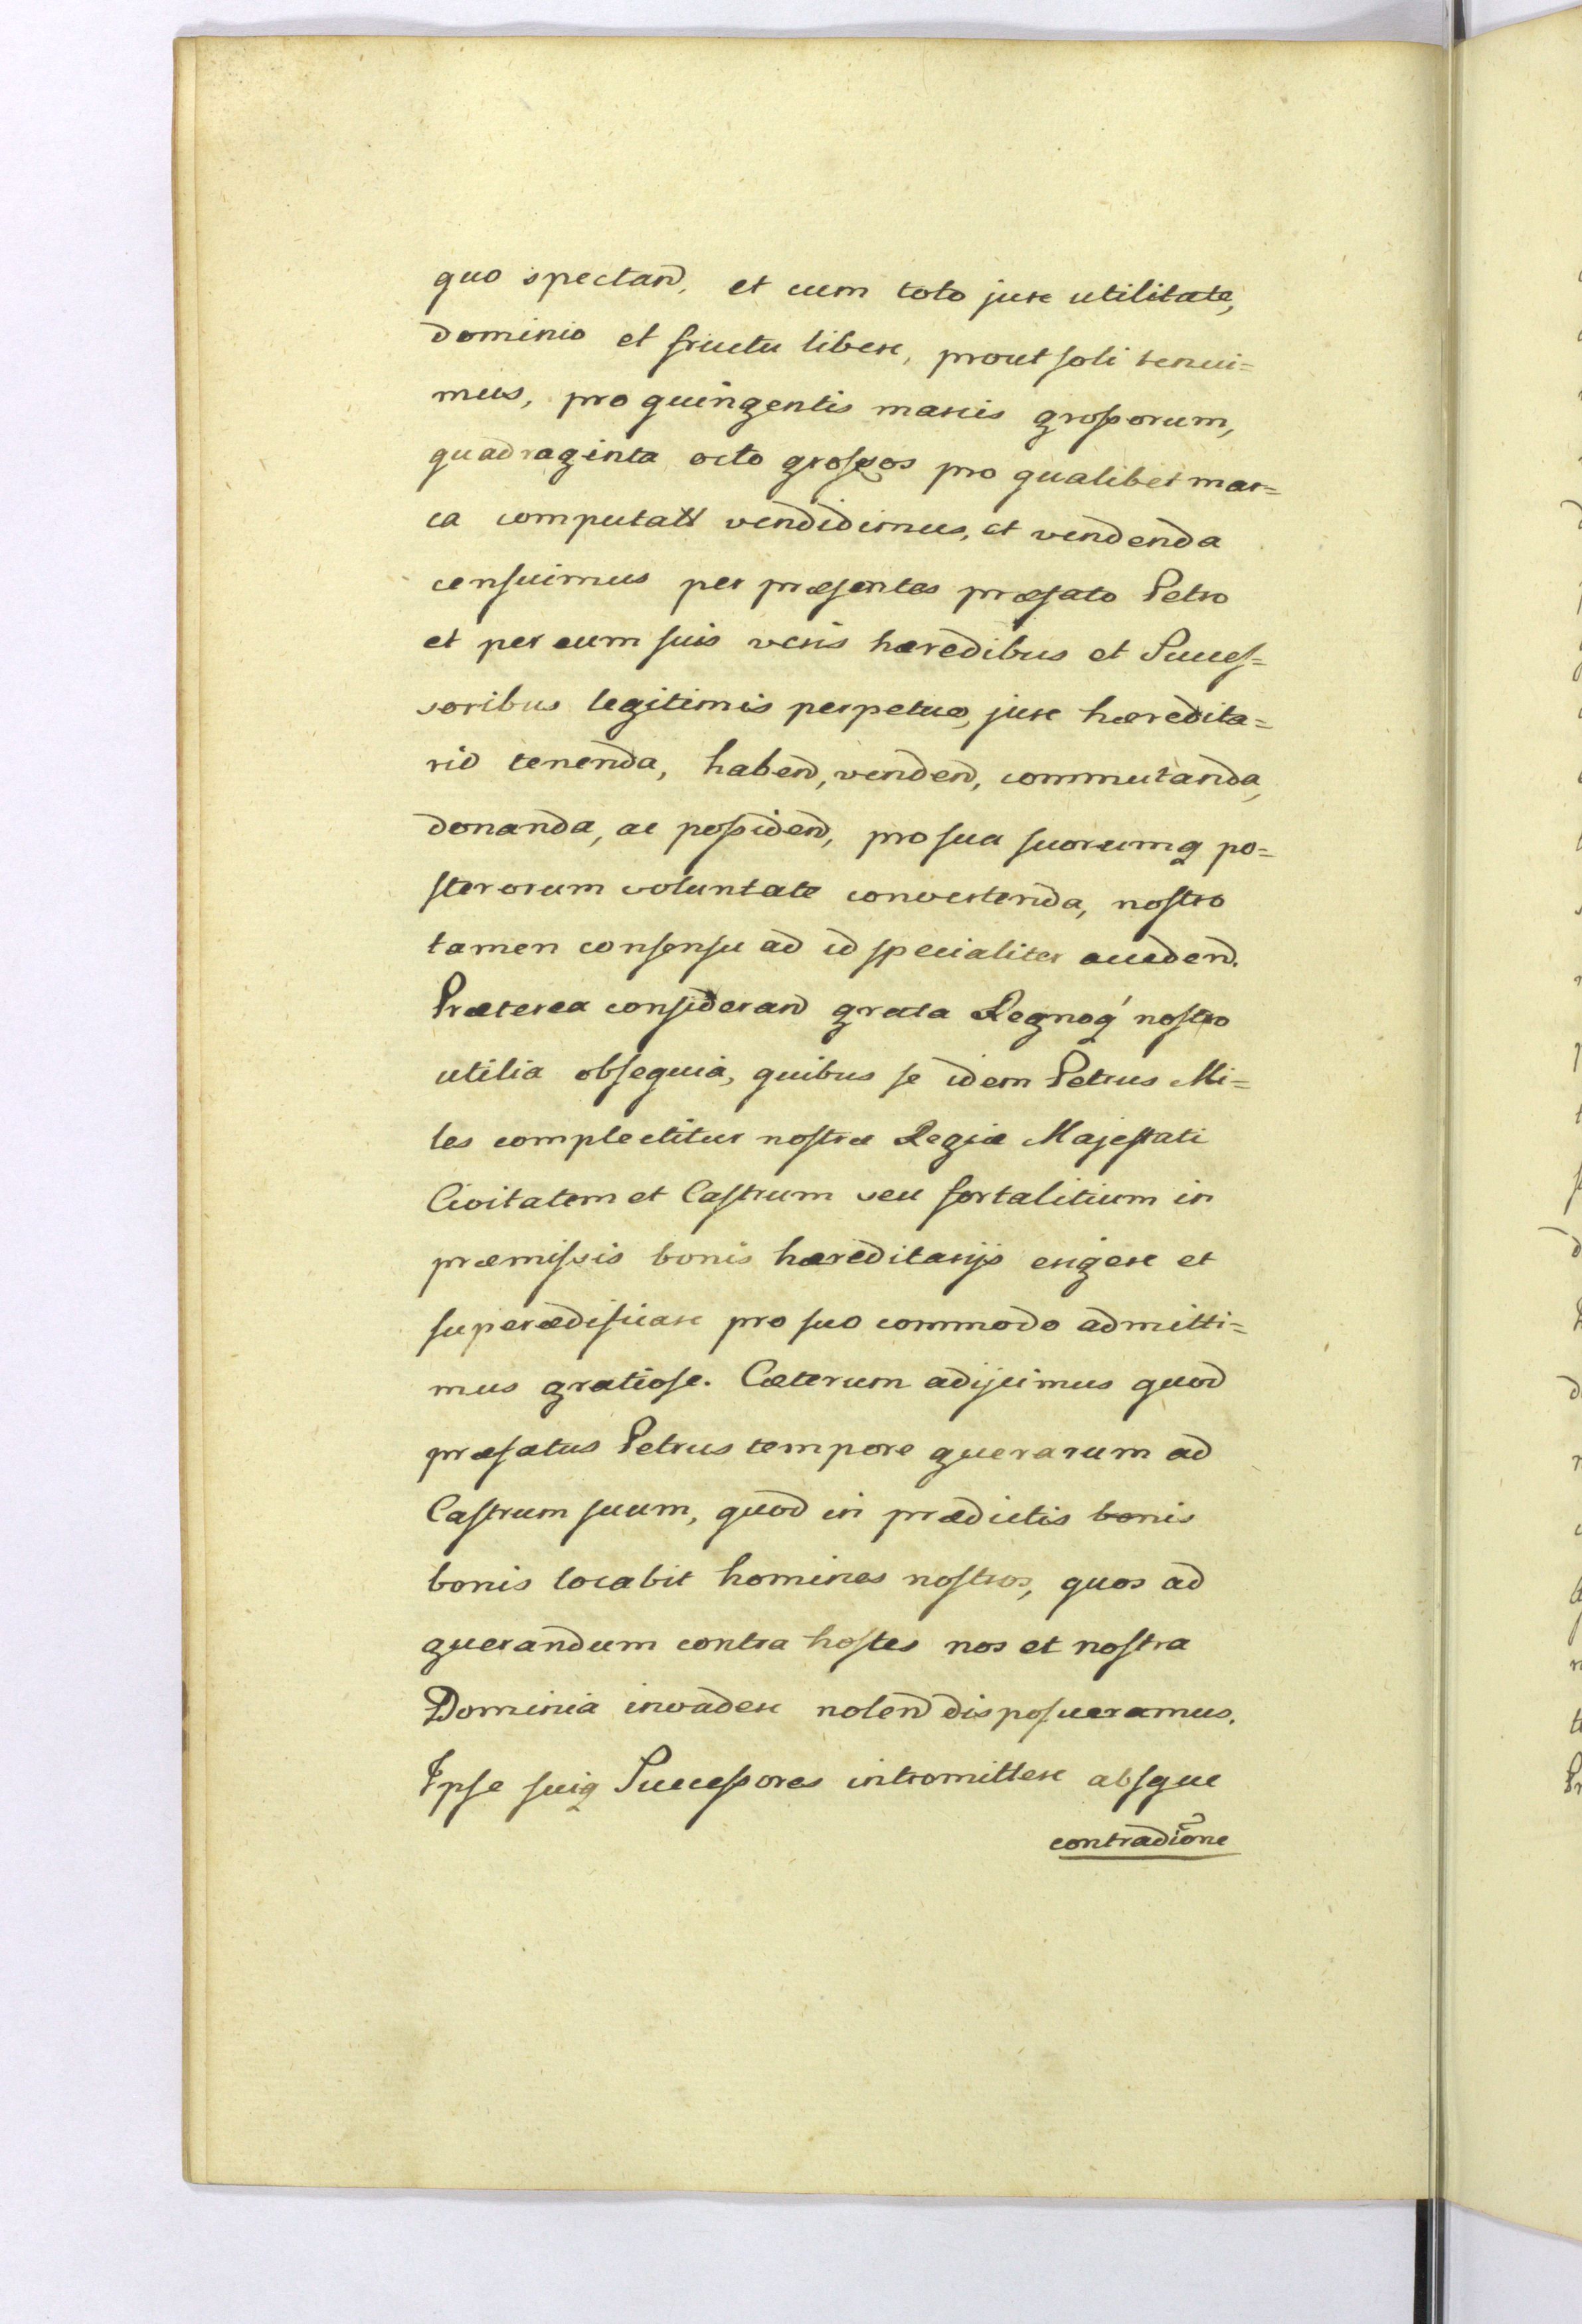 quo spectand, et cum toto jure utilitate,
dominio et fructu libere, prout soli tenui=
mus, pro quingentis marcis grossorum,
quadraginta octo grossos pro qualibet mar=
ca computatt vendidimus, et vendenda
censuimus per præsentes præfato Petro
et per eum suis veris hæredibus et Succes=
soribus legitimis perpetuo, jure hæredita=
rio tenenda, habend, venden, commutanda,
donanda, ac possidend, pro sua suorumq po=
sterorum voluntate convertenda, nostro
tamen consensu ad id specialiter acceden.
Præterea considerand grata Regnoq nostro
utilia obsequia, quibus se idem Petrus Mi=
les complectitur nostræ Regiæ Majestati
Civitatem et Castrum seu fortalitium in
præmissis bonis hæreditarijs erigere et
superædificare pro suo commodo admitti=
mus gratiose. Cæterum adijcimus quod
præfatus Petrus tempore guerarum ad
Castrum suum, quod in prædictis bonis
bonis locabit homines nostros, quos ad
guerandum contra hostes nos et nostra
Dominia invadere nolend disposueramus.
Ipse suiq Successores intromittere absque
contradione